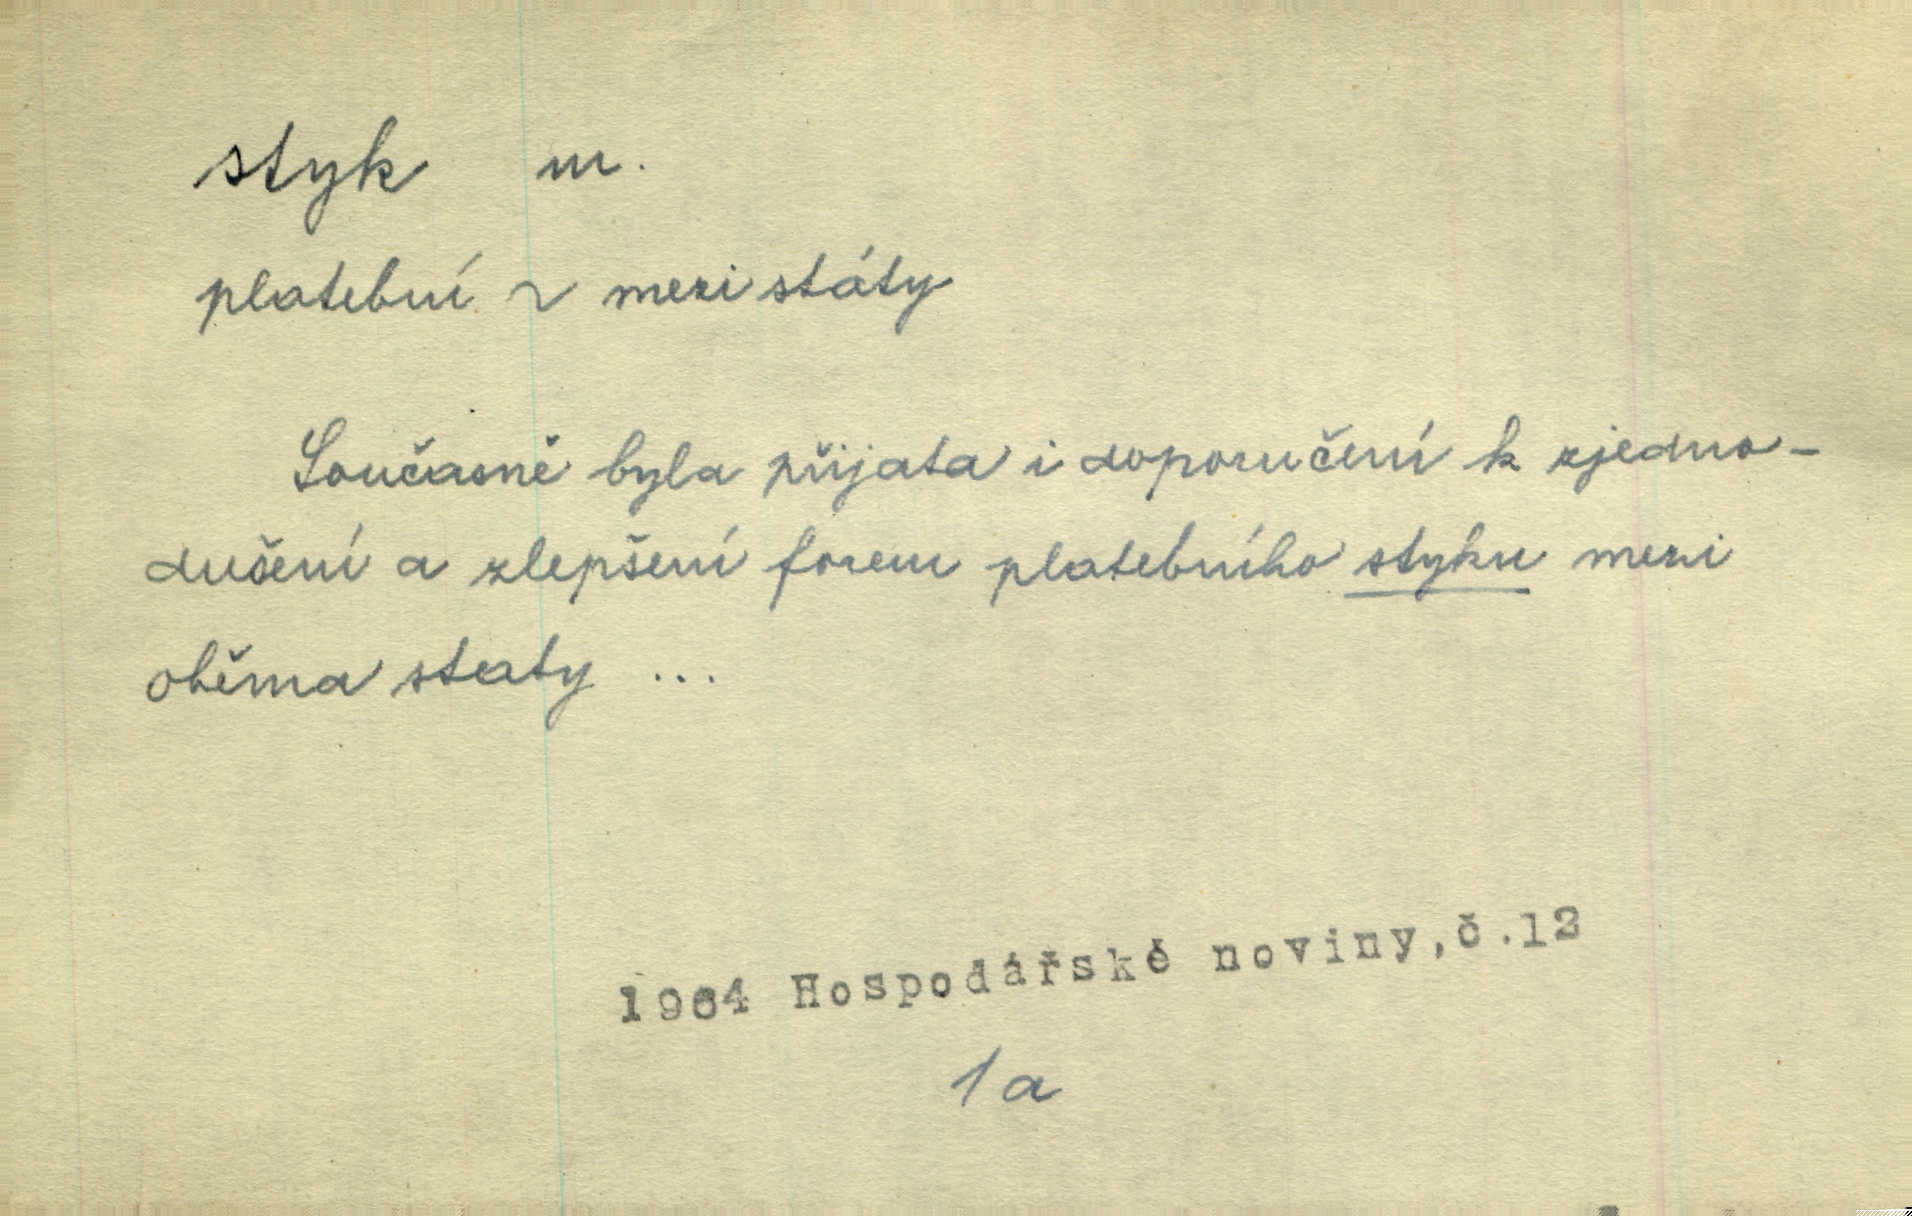 styk m.
platební ~ mezi státy
Současně byla přijata i doporučení k zjedno-
dušení a zlepšení forem platebního styku mezi
oběma staty ...
1964 Hospodářské noviny, č.12
1a